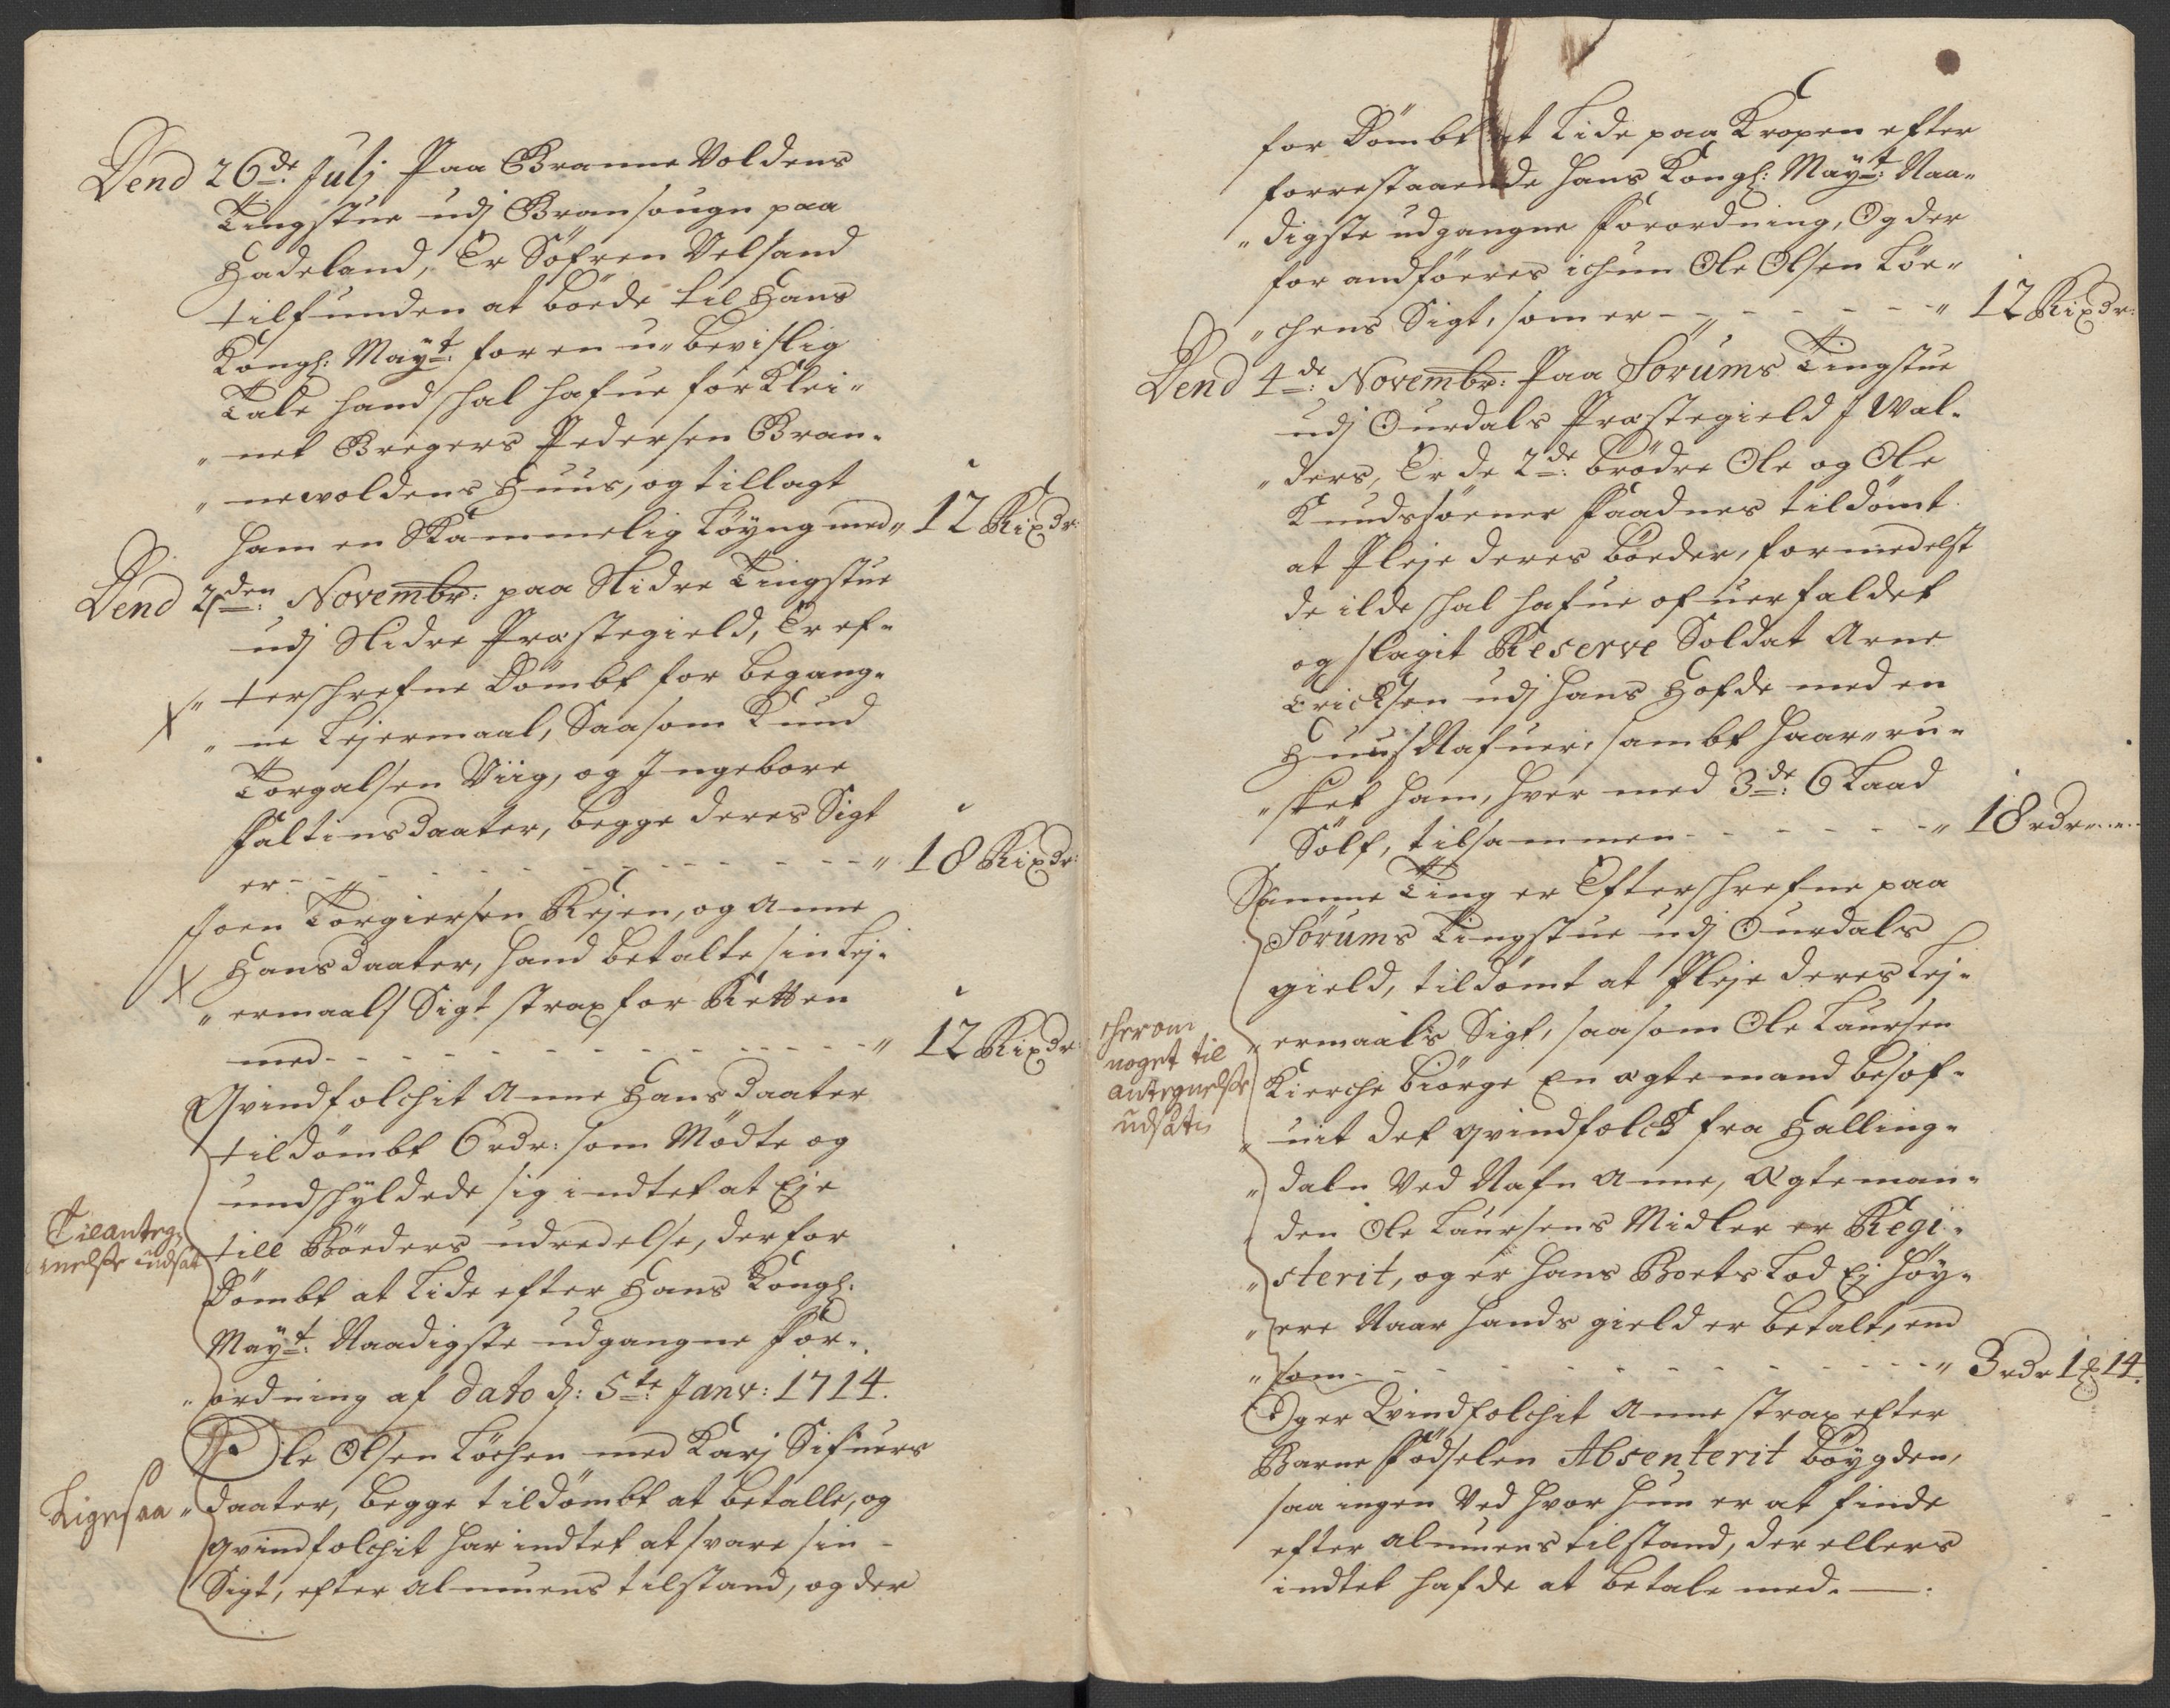 Dend 26de Julj Paa Branne Voldens
Tingstue udj Bransougn paa
Hadeland, Er Söfren Velsand
tilfunden at böede til Hans
Kongl: Mayt: for en u-bevislig
Tale hand schal hafue før Klei-
"net Bregers Pedersen Bran-
"newoldens Huus, og tillagt
ham en Skammelig Löyng med " 12 Rixdr:
Dend 2den: Novembr: paa Slidre Tingstue
udj Slidre Præstegield, Er ef-
"terschrefne Dömbt for begang-
"ne Lejermaal, Saasom Knud
Torgalsen Viig, og Ingebore
Faltinsdaater, begge deres Sigt
er - - - - - - - - " 18 Rixdr:
Joen Torgiersen Rejen, og Anne
Hansdaater, hand betalte sin Lej-
"ermaals Sigt strax for Retten
med - - - - - - - - " 12 Rixdr:
Qvindfolchit Anne Hansdaater
tildömbt 6 rdr: som Mödte og
undschyldede sig indtet at Eje
till Böeders udredelse, derfor
Tilanteg-
nelse udsat
Dömbt at Lide efter Hans Kongl:
Mayt: Naadigste udgangne For-
"ordning af dato d: 5te: Janv: 1714.
Ole Olsen Löchen med Karj Sifuers
Ligesaa
"daater, begge tildömbt at betalle, og
qvindfolchit har indtet at svare sin
Sigt, efter almuens tilstand, og der
for Dömbt at Lide paa Kropen efter
forrestaaende Hans Kongl: Mayt: Naa-
"digste udgangne Forordning, Og der
for andföeres ichun Ole Olsen Löe-
"chens Sigt, som er - - - - - " 12 Rixdr:
Dend 4de: Novembr: Paa Sørums Tingstue
udj Ourdals Præstegield J Wal-
"ders, Er de 2de: brödre Ole og Ole
Knudssöenner Faadnes tildömt
at Pleje deres böeder, formedelst
de ilde schal hafue ofuerfaldet
og slagit Reserve Soldat Arne
Ericksen udj hans Hofde med en
Huus Nafuer, sambt haar-ru-
"sket ham, hver med 3de: 6 Laad
Sölf, tilsammen - - - - - " 18 rdr - - -
Samme Ting er Efterschrefne paa
Sørums Tingstue udj Ourdals
gield, tildömt at Pleje deres Lej-
herom
noget til
antegnelse
udsat
"ermaals Sigt, saasom Ole Laursen
Kierche biörge En ægtemand besof-
"uit det qvindfolck fra Halling-
"dalen Ved Nafn Anne, Ægteman-
"den Ole Laursens Midler er Regi-
"sterit, og er hans Boets Lod Ej höy-
"ere Naar hands gield er betalt, end
"som - - - - - - - - " 3 rdr 1 ℔ 14.
Og er Qvindfolchit Anne strax efter
Barne Födselen Absenterit böygden,
saa ingen Ved hvor hun er at finde
efter almuens tilstand, der ellers
indtet hafde at betale med. —: